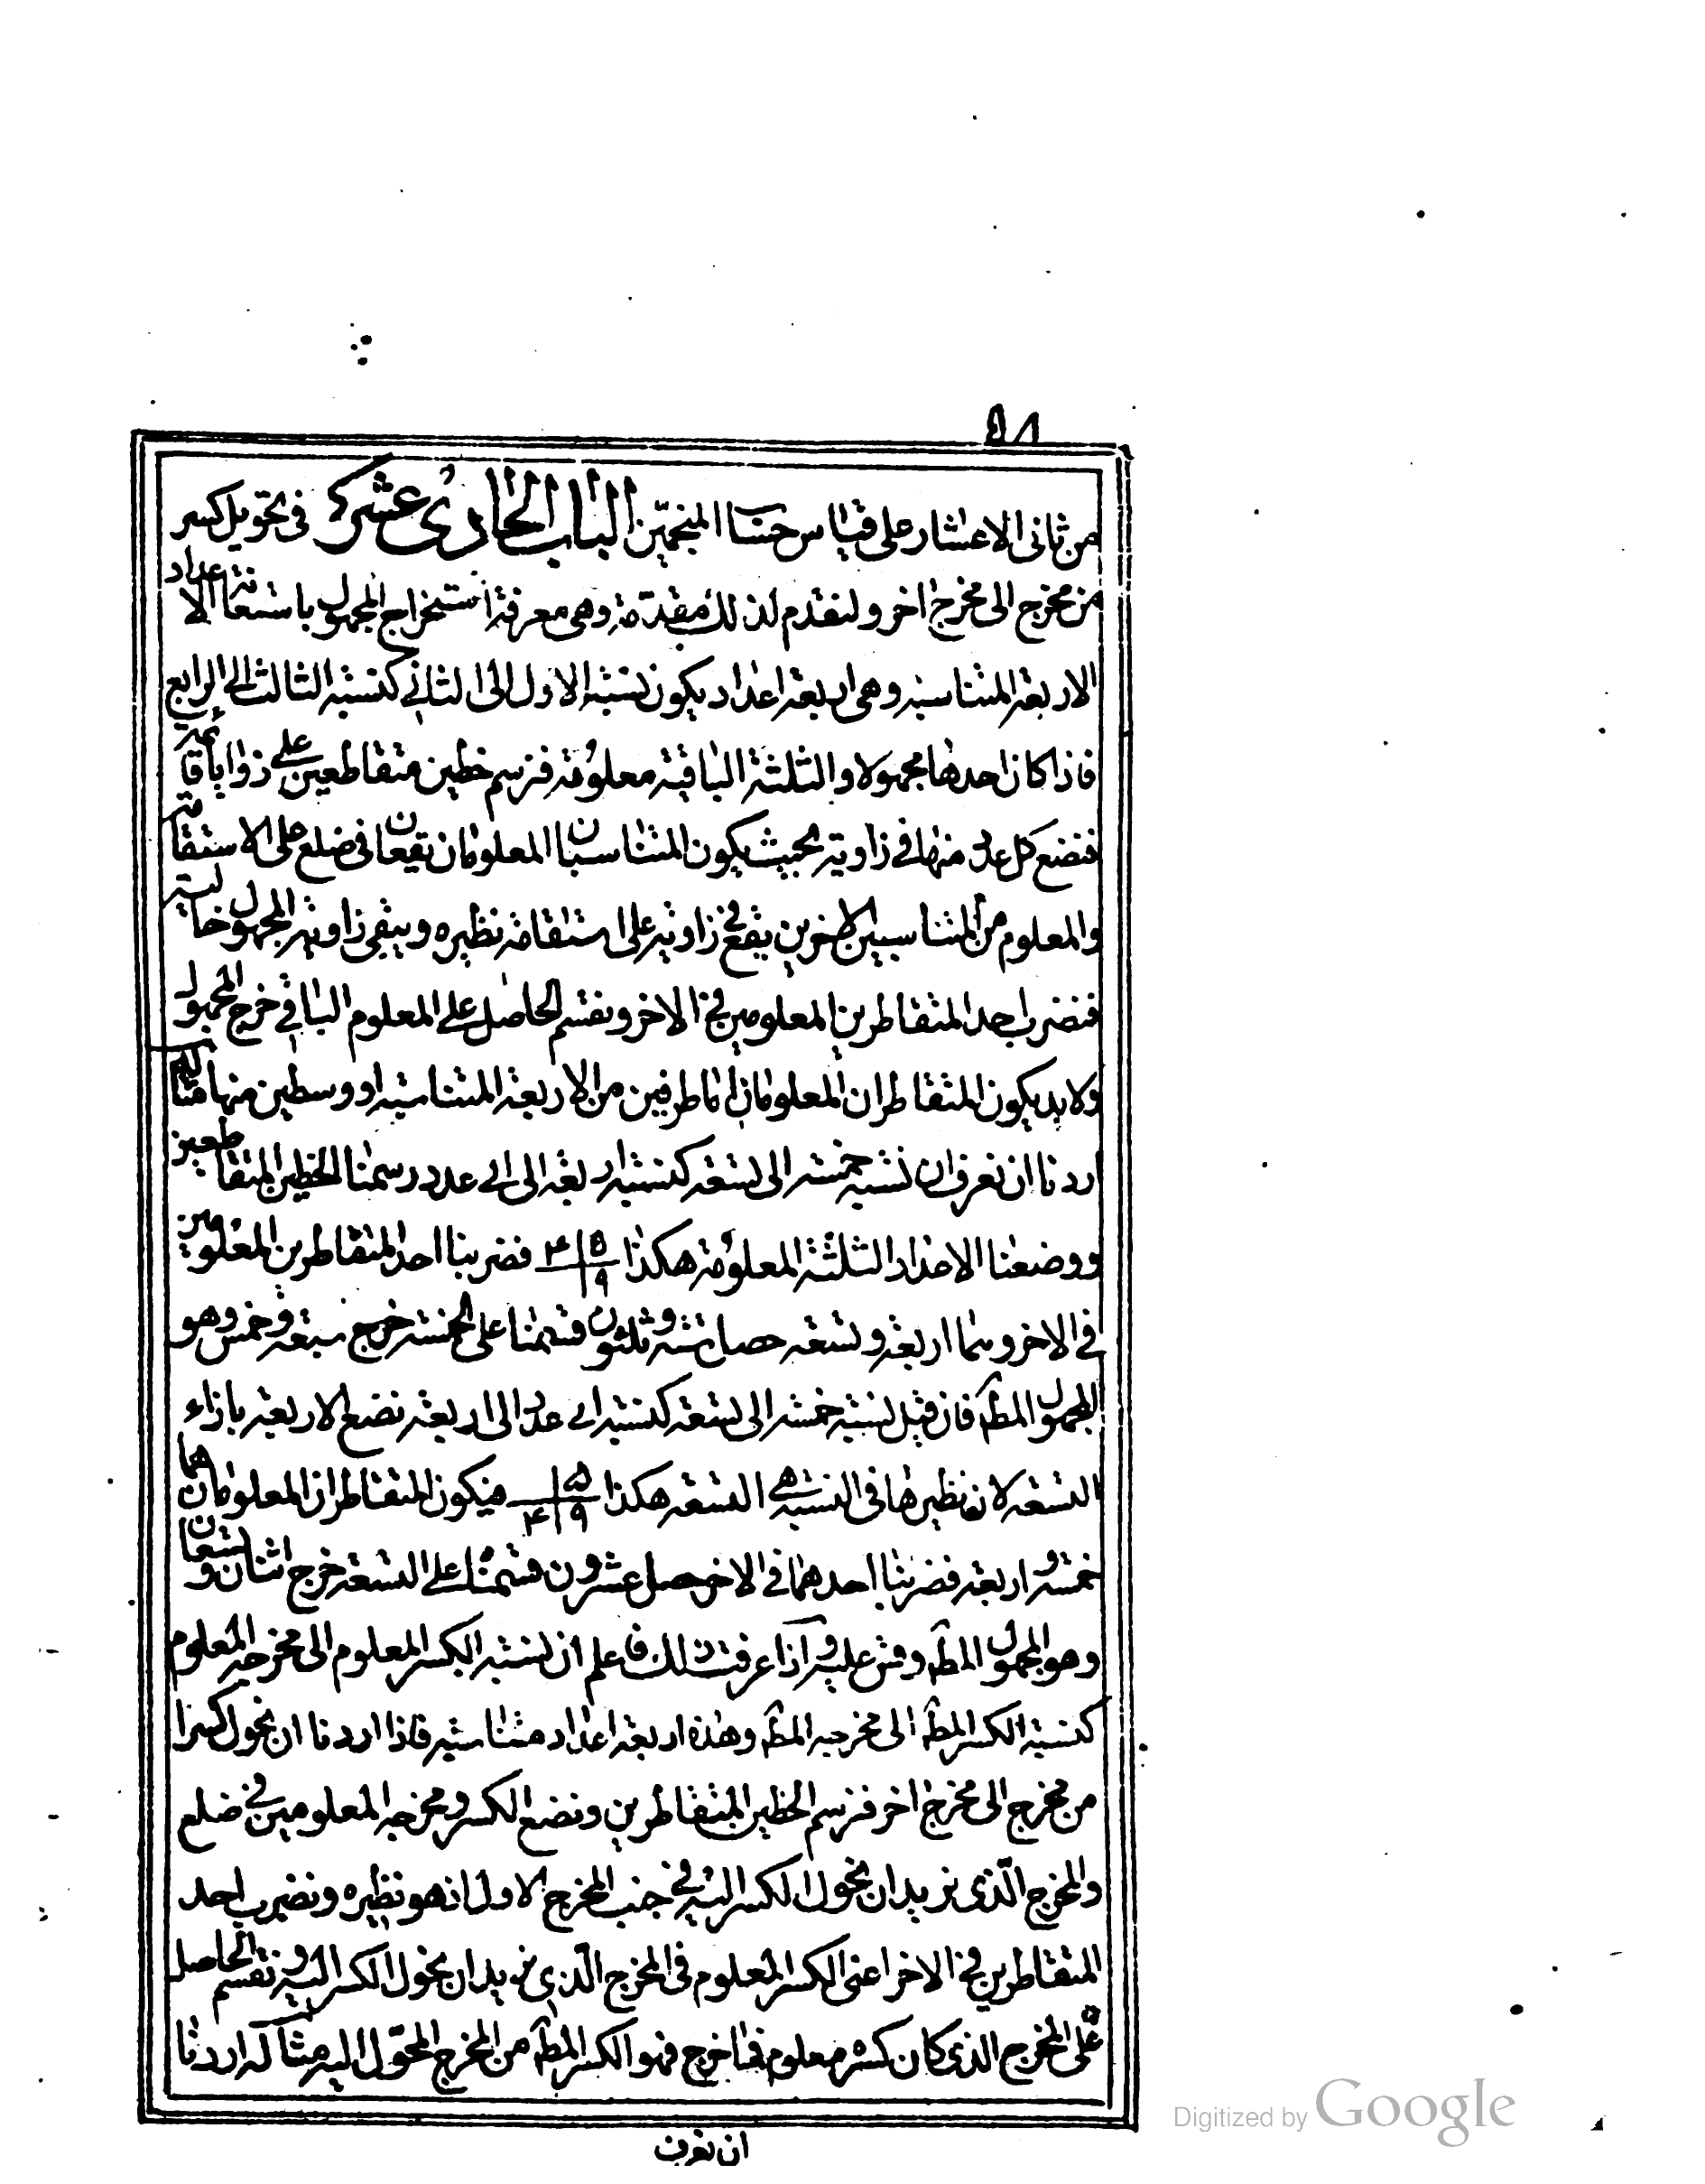 ٥٨
من ثانى الاعشار على قياس حساب المنجمين الباب الحادى عشر فى تحويل كسر
من مخرج الى مخرج اخر ولنقدم لذلك مقدمة وهى معرفة استخراج المجهول باستعانة الاعداد
الاربعة المتناسبة وهى اربعة اعداد يكون نسبة الاول الى الثانى كنسبة الثالث الى الرابع
فاذا كان احدها مجهولا والثلثة الباقية معلومة فنرسم خطين متقاطعين على زوايا قائمة
فنضع كل عدد منها فى زاوية بحيث يكون المتناسبان المعلومان يقعان فى ضلع على الاستقامة
والمعلوم من المتناسبين الاخرين يقع فى زاوية على استقامة نظيره ويبقى زاوية المجهول خالية
فنضرب احد المتقاطرين المعلومين فى الاخر ونقسم الحاصل على المعلوم الباقى خرج المجهول
ولابد يكون المتقاطران المعلومان اما طرفين من الاربعة المتناسبة او وسطين منها مثاله
اردنا ان نعرف ان نسبة خمسة الى تسعة كنسبة اربعة الى اى عدد رسمنا الخطين المتقاطعين
ووضعنا الاعداد الثلثة المعلومة هكذا ٥ ۴ ٩ فضربنا احد المتقاطرين المعلومين
فى الاخر وهما اربعة وتسعة حصل ستة وثلثون قسمنا على الخمسة خرج سبعة وخمس وهو
المجهول المطـ فان قيل نسبة خمسة الى تسعة كنسبة اى عدد الى اربعة نضع الاربعة بازاء
التسعة لان نظيرها فى النسبة هى التسعة هكذا ٥ ٩ ۴ فيكون المتقاطران المعلومان هما
خمسة واربعة فضربنا احدهما فى الاخر حصل عشرون قسمنا على التسعة خرج اثنان وتسعان
وهو المجهول المطـ وقس عليه واذا عرفت ذلك فاعلم ان نسبة الكسر المعلوم الى مخرجه المعلوم
كنسبة الكسر المطـ الى مخرجه المطـ وهذه اربعة اعداد متناسبة فاذا اردنا ان نحول كسرا
من مخرج الى مخرج اخر فنرسم الخطين المتقاطرين ونضع الكسر ومخرجه المعلومين فى ضلع
والمخرج الذى نريد ان نحول الكسر اليه فى جنب المخرج الاول اذ هو نظيره ونضرب احد
المتقاطرين فى الاخر اعنى الكسر المعلوم فى المخرج الذى نريد ان نحول الكسر اليه ونقسم الحاصل
على المخرج الذى كان كسره معلوم فما خرج فهو الكسر المطـ من المخرج المحول اليه مثاله اردنا
ان نعرف
Digitized by Google